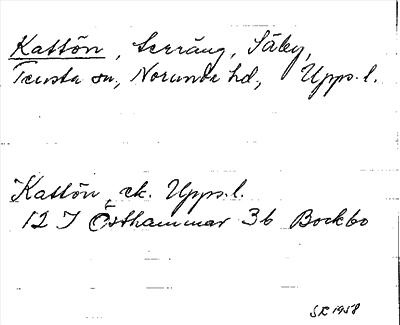 Kattön, terräng, Säby,
Tensta sn, Norunda hd, Upps. l.
Kattön, ek. Upps. l.
12 I Östhammar 3b Bockbo
SR 1958